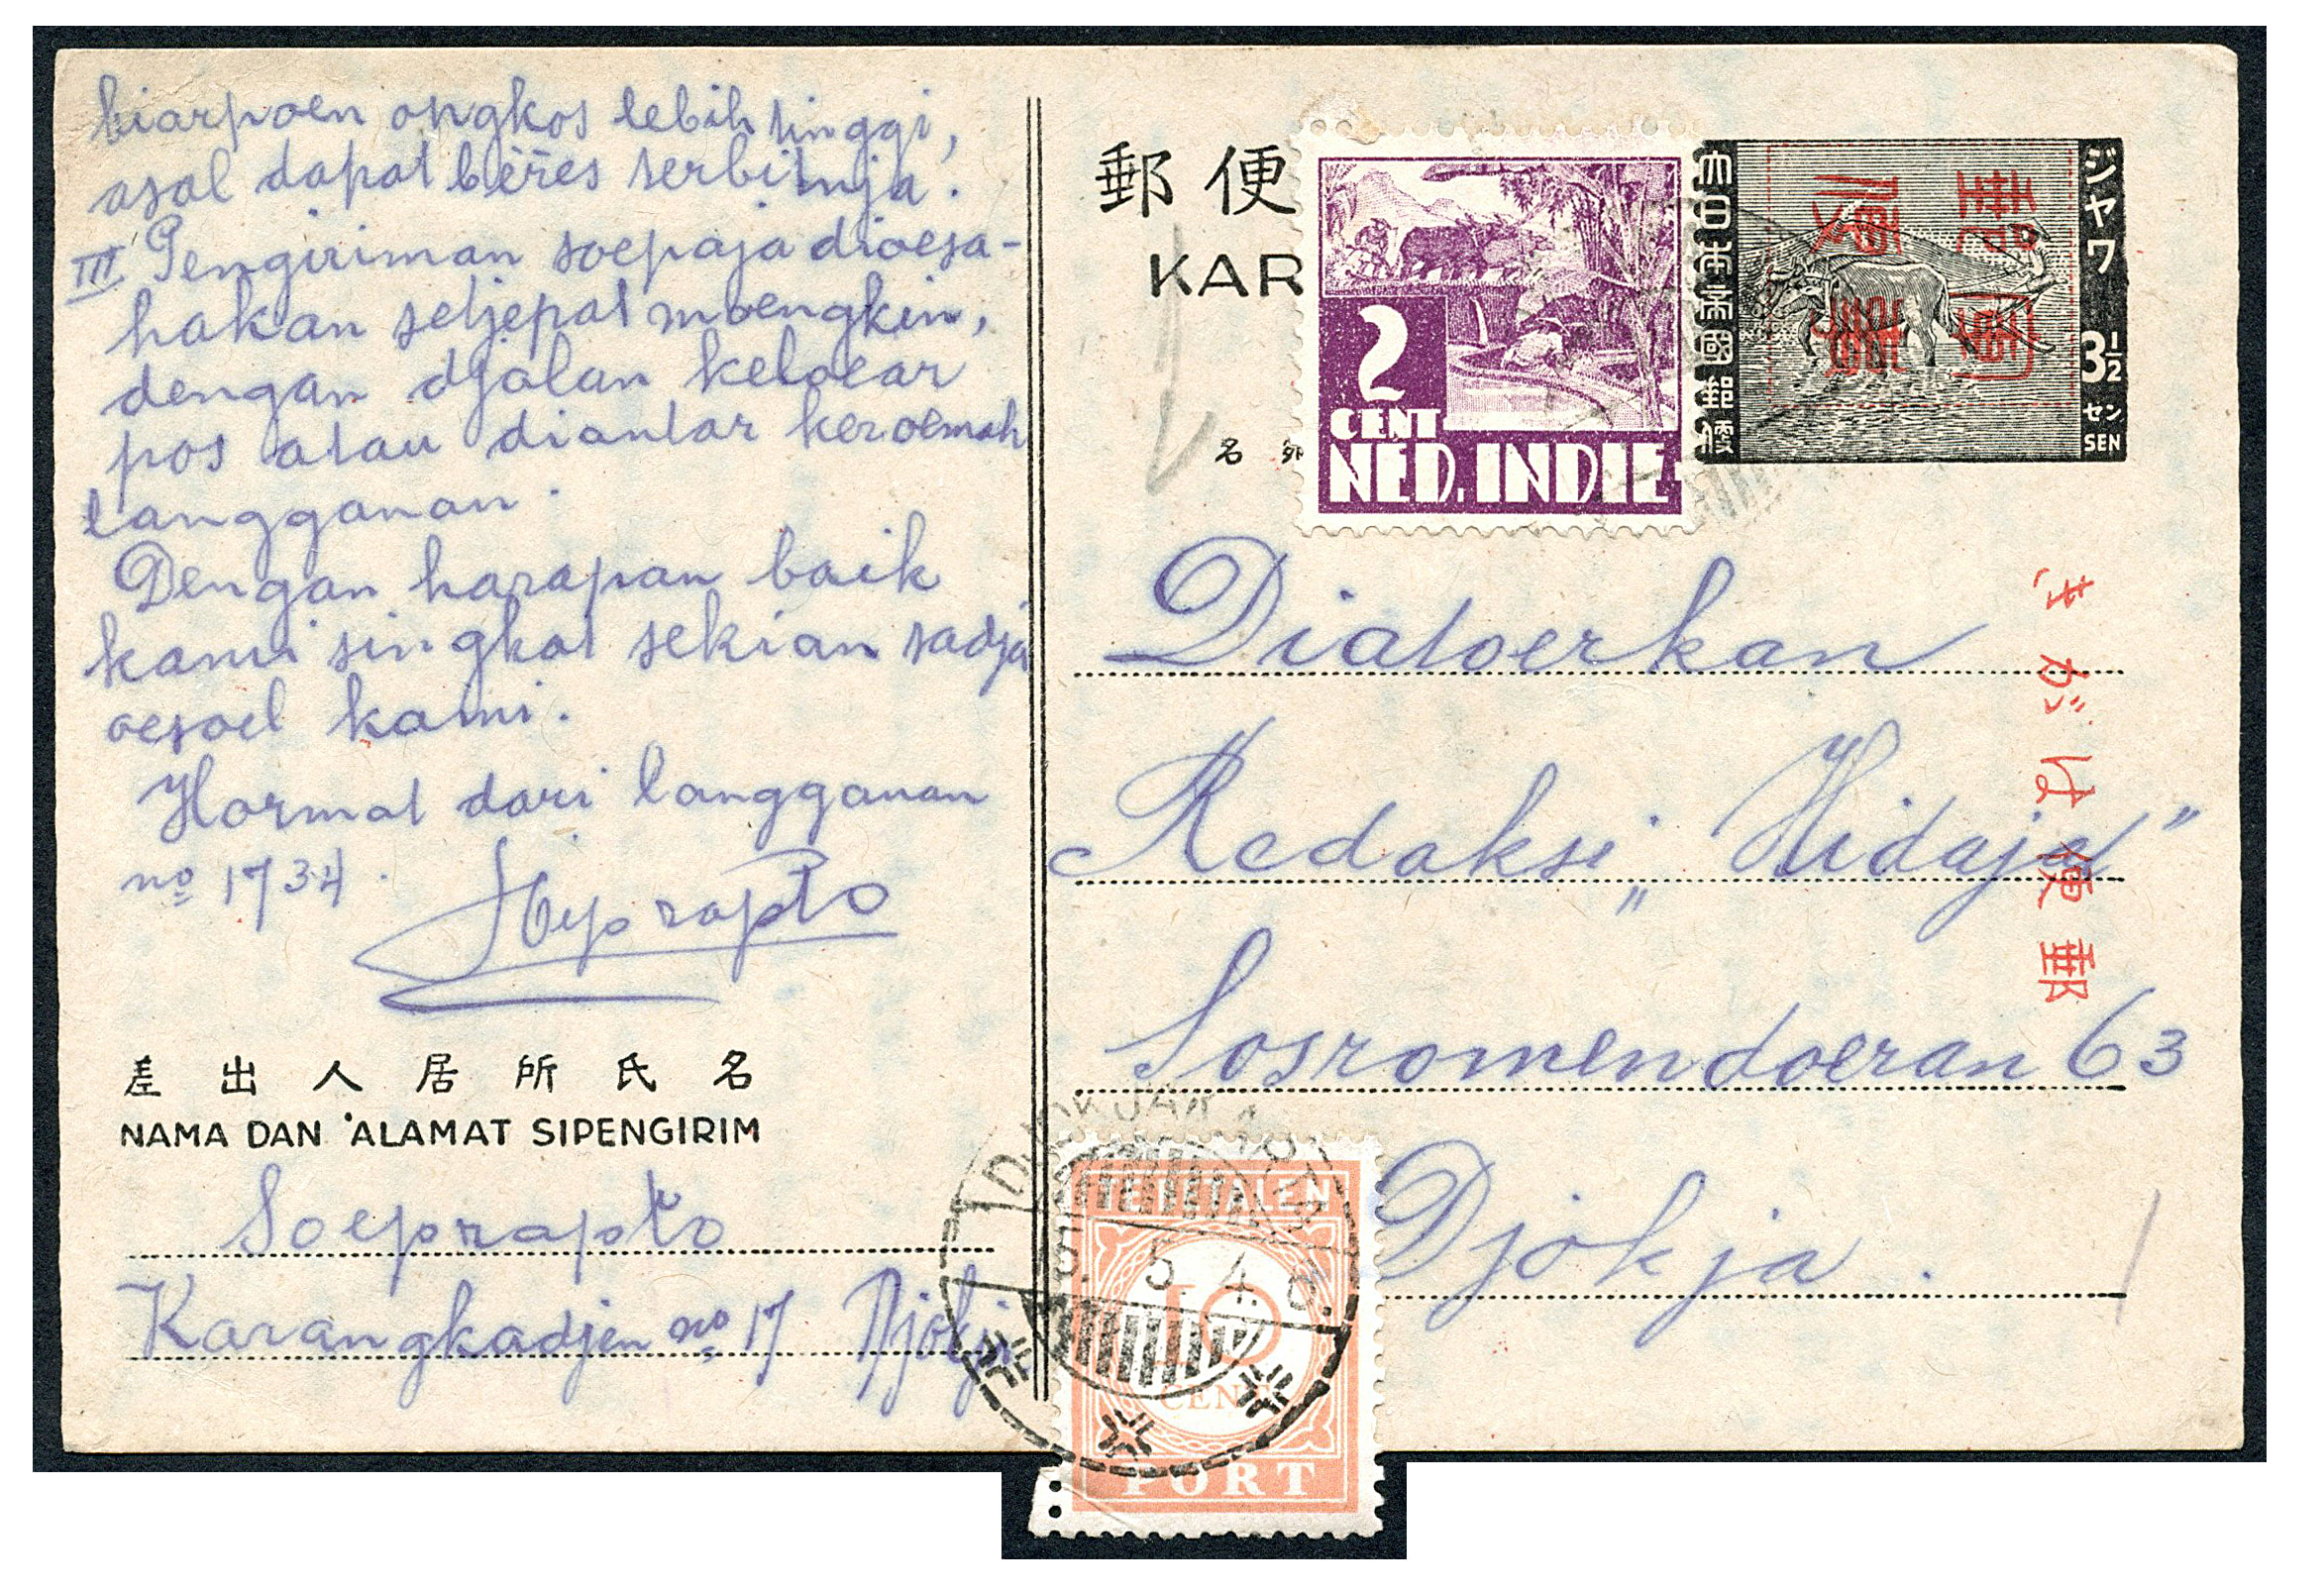 biarpoen ongkos lebih tinggi,
asal dapat bëres serbitnja.
III Pengiriman soepaja dioesa-
hakan setjepat moengkin,
dengan djalan keloear
pos atau diantar keroemah
langganan.
Dengan harapan baik
kami singkat sekian sadja
oesoel kami.
Hormat dari langganan
no 1734.
差出人居所氏名
NAMA DAN 'ALAMAT SIPENGIRIM
Soeprapto
Karangkadjen no 17 Djokja
郵便
KAR
名
2
CENT
NED. INDIE
大日本帝國郵便
ジャワ
3½
セン
SEN
きがは便郵
Diatoerkan
Redaksi „Hidajat"
Sosromendoeran 63
Djokja.
TE BETALEN
10
CENT
PORT